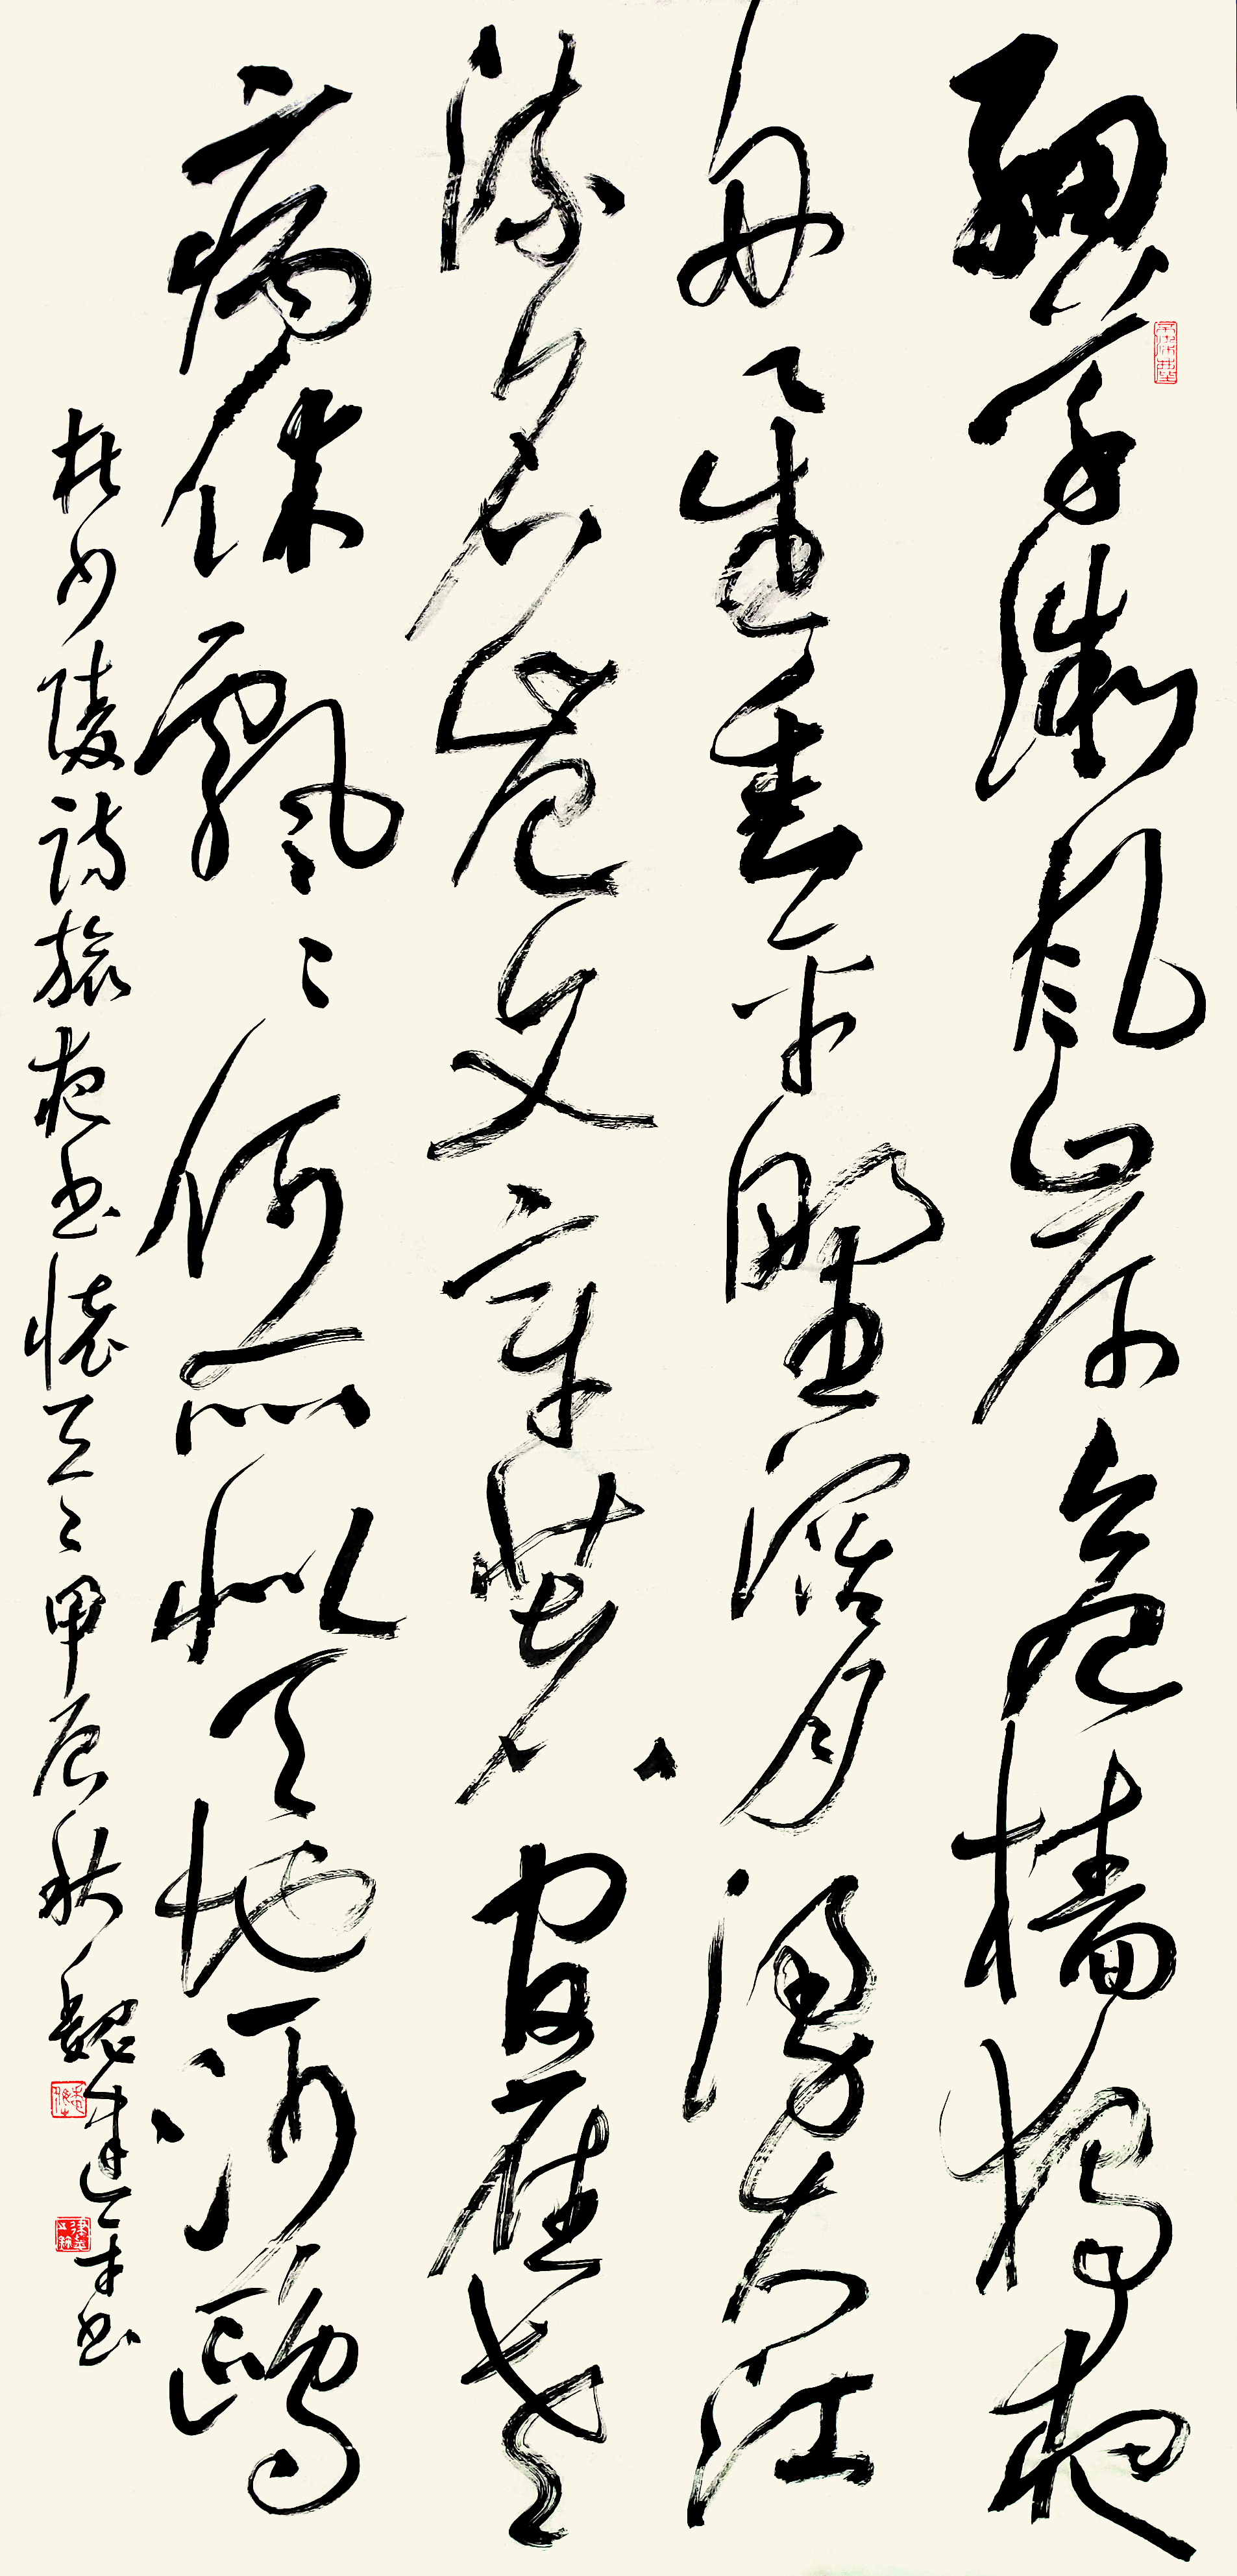 細草微風岸危檣獨夜
舟星垂平野濶月湧大江
流名豈文章著官應老
病休飄〻何所似天地一沙鷗
杜少陵詩旅夜書懷云〻甲辰秋魏建書